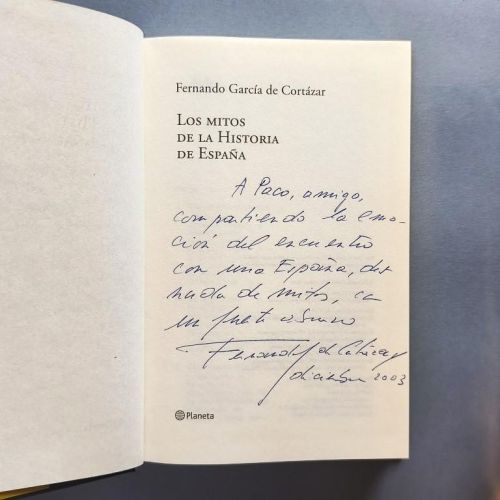 Fernando García de Cortázar
Los mitos
de la Historia
de España
A Paco, amigo,
compartiendo la emo-
ción del encuentro
con una España, des
nuda de mitos, 
un
Fernando G de Cortázar
diciembre 2003
Planeta